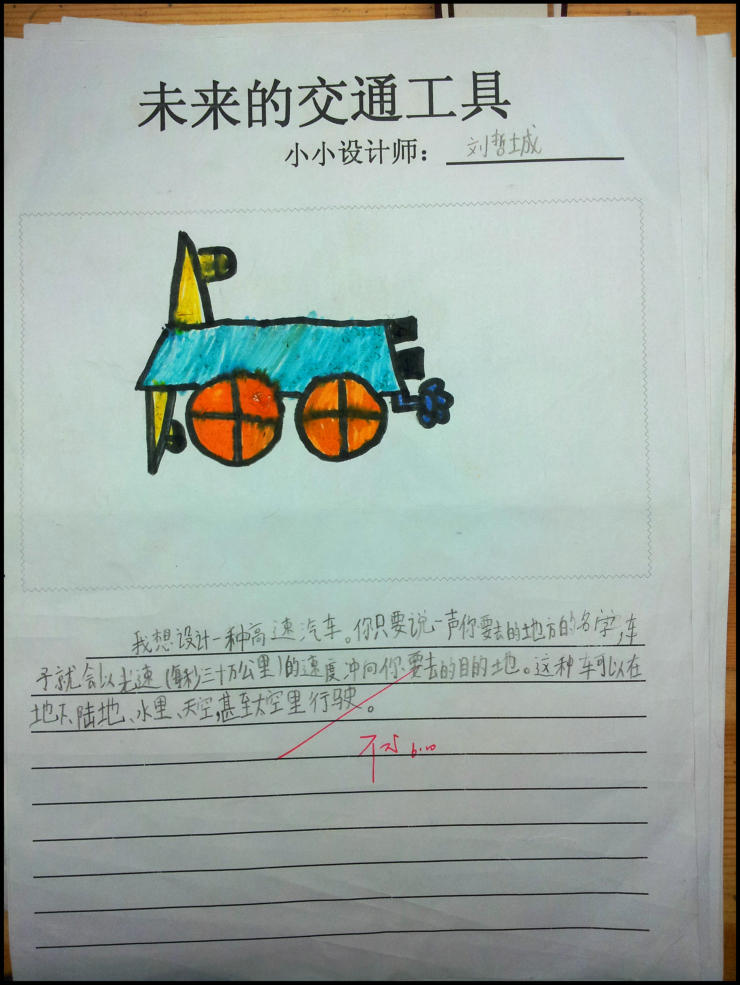 未来的交通工具
小小设计师：刘哲城
我想设计一种高速汽车。你只要说一声你要去的地方的名字，车
子就会以光速（每秒三十万公里）的速度冲向你要去的目的地。这种车可以在
地下、陆地、水里、天空，甚至太空里行驶。